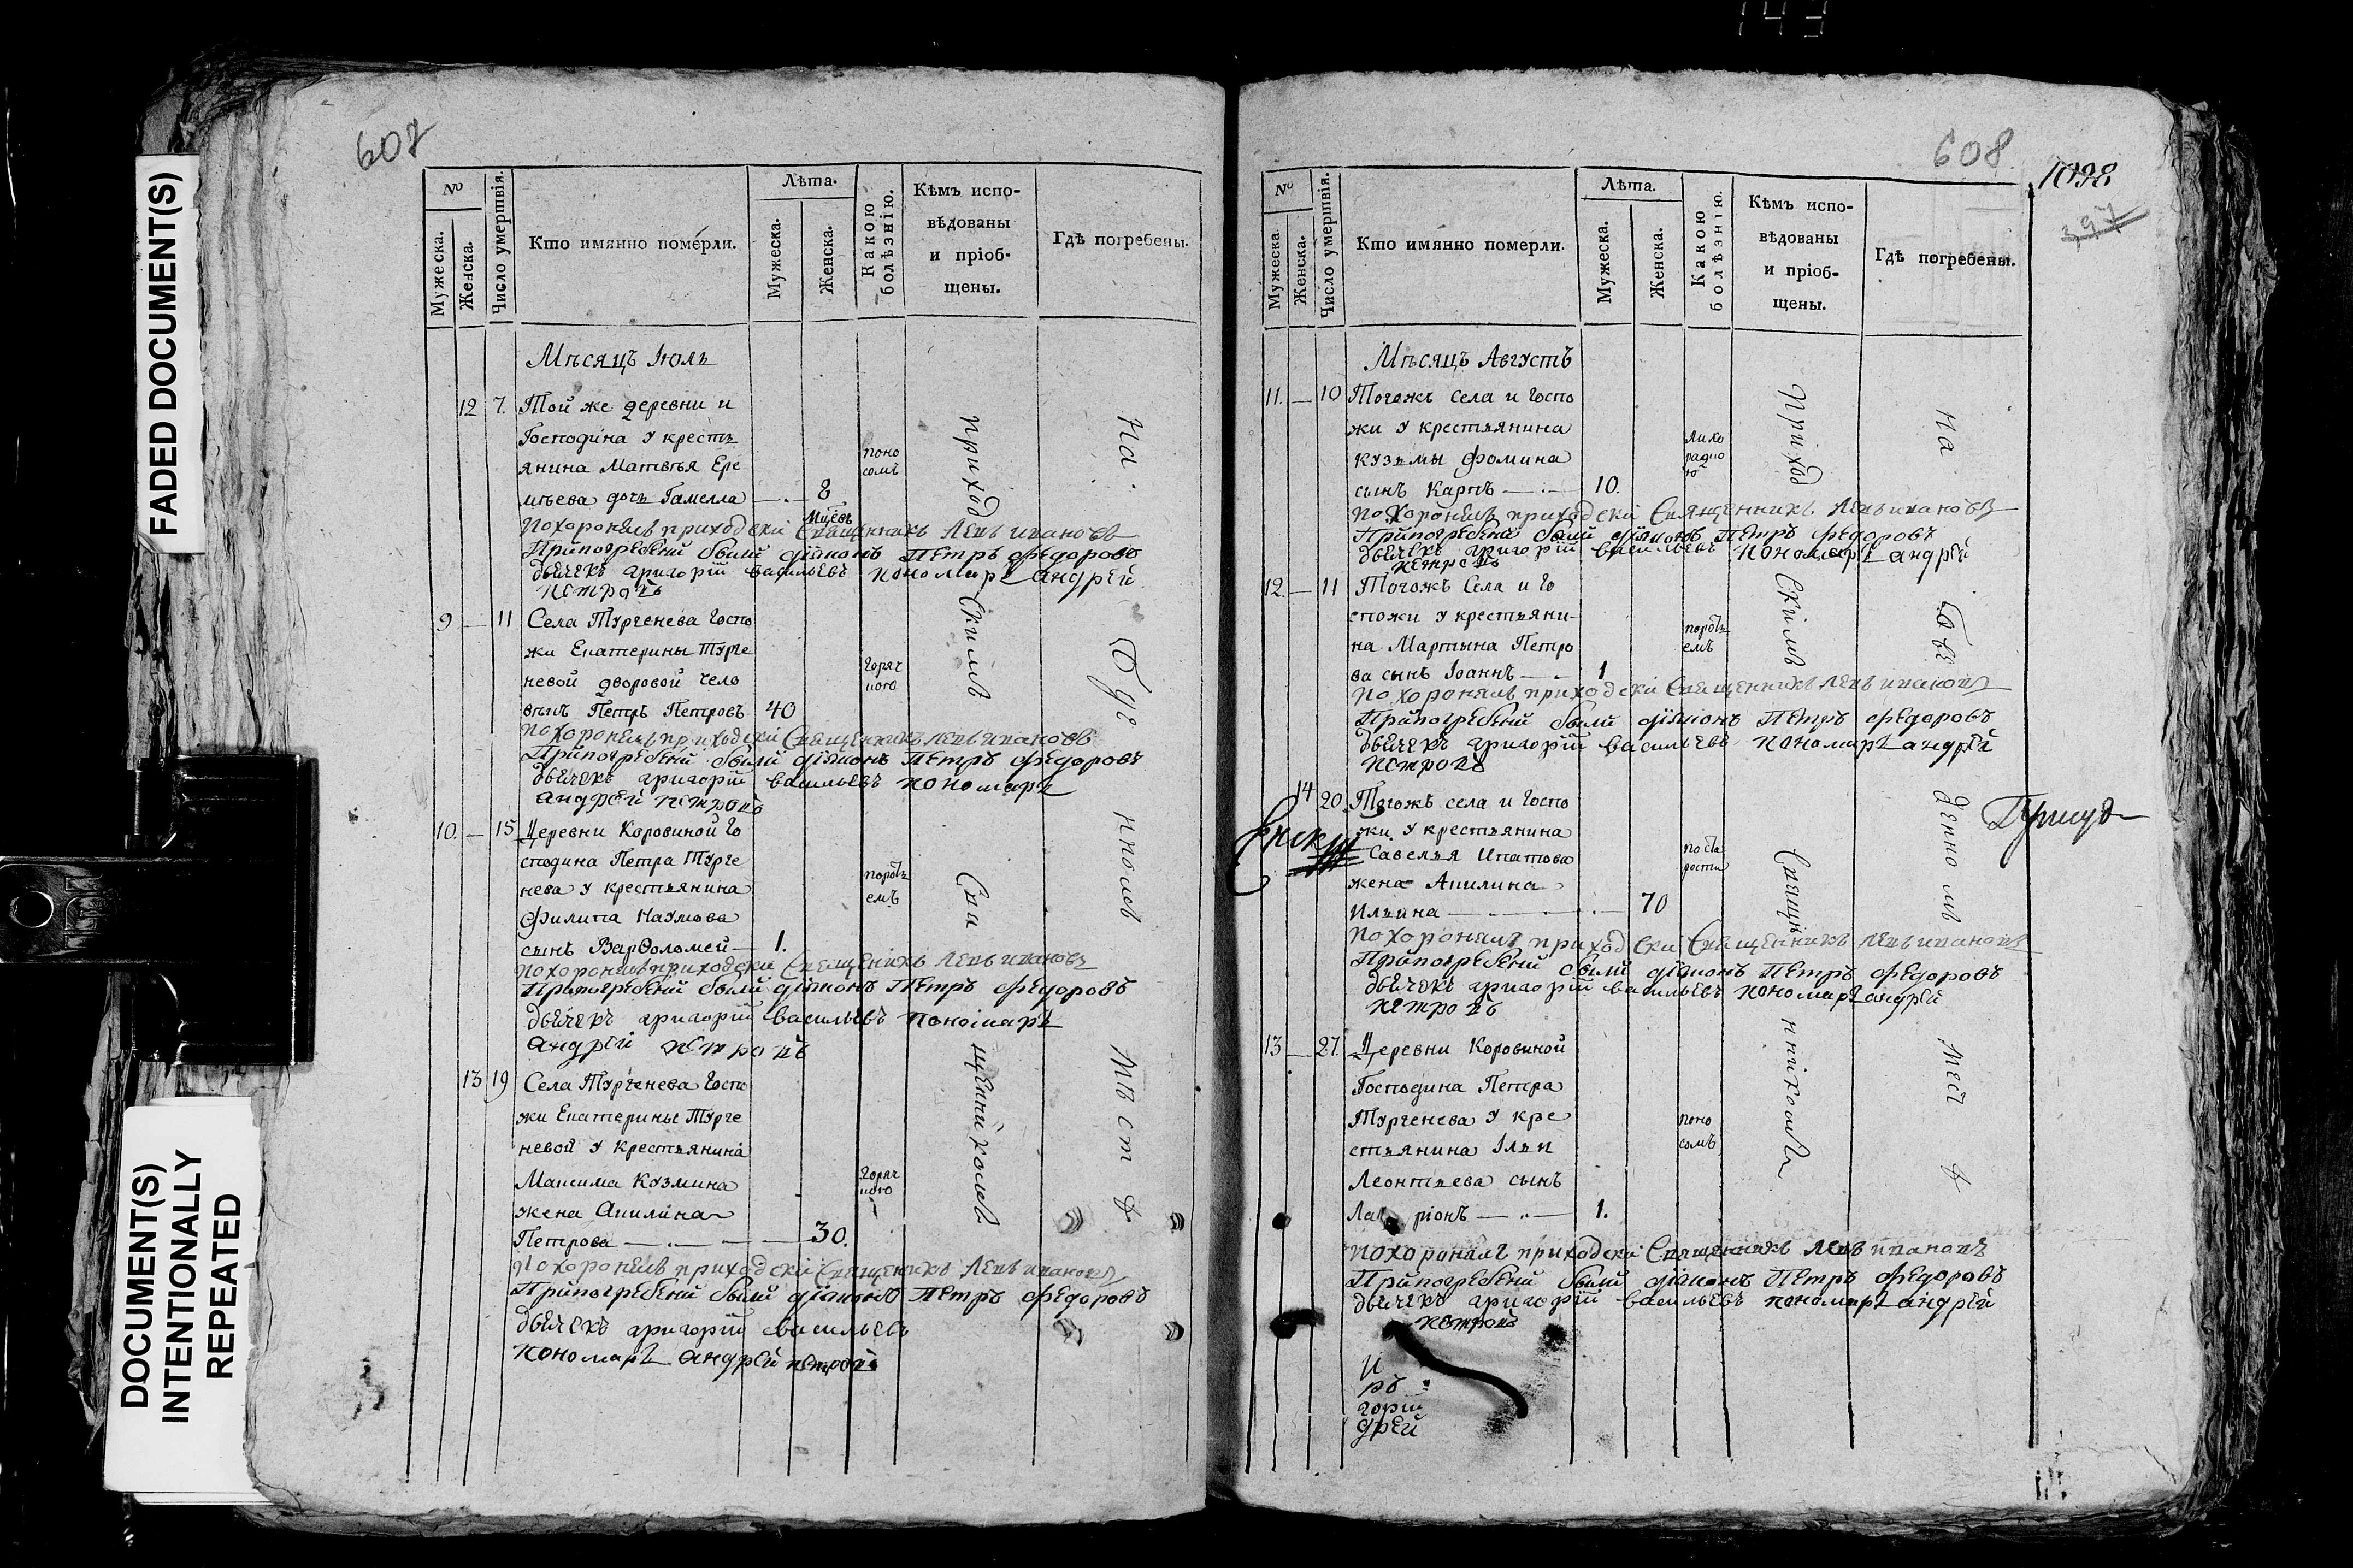 143
FADED DOCUMENT(S)
DOCUMENT(S)
INTENTIONALLY
REPEATED
607
№
Мужеска.
Женска.
Число умертвія.
Кто имянно померли.
Лѣта.
Мужеска.
Женска.
Какою
болѣзнію.
Кѣмъ испо-
вѣдованы
и пріоб-
щены.
Гдѣ погребены.
Мѣсяцъ Іюль
12 7. Той же деревни и
Господина у кресть
янина Матвѣя Ере
мѣева дочь Гамелла 8
Мцевъ
поно
сомъ
похоронилъ приходскй Священникъ Левъ Ивановъ
Припогребенй были діяконъ Петръ Федоровъ
дьячекъ Григорій Васильевъ пономарь Андрей
Петровъ
9 — 11 Села Тургенева Госпо
жи Екатерины Турге
невой дворовой чело
вѣкъ Петръ Петровъ 40
горяч
кою
похоронилъ приходскй Священникъ Левъ Ивановъ
Припогребенй были діяконъ Петръ Федоровъ
дьячекъ Григорій Васильевъ пономарь
Андрей Петровъ
10. — 15 Деревни Коровиной Го
сподина Петра Турге
нева у крестьянина
Филипа Наумова
сынъ Варѳоломей — 1.
воробь
емъ
похоронилъ приходскй Священикъ Левъ Ивановъ
Припогребенй были діяконъ Петръ Федоровъ
дьячекъ Григорій Васильевъ пономарь
Андрей Петровъ
13 19 Села Тургенева Госпо
жи Екатерины Турге
невой у крестьянина
Максима Козмина
жена Акилина
Петрова — 30.
горяч
кою
похоронилъ приходскй Священникъ Левъ Ивановъ
Припогребенй были діяконъ Петръ Федоровъ
дьячекъ Григорій Васильевъ
пономарь Андрей Петровъ
приход
скимъ
Свя
щенникомъ
На
Обще
нномъ
Мѣст
ѣ
608
1098
397
№
Мужеска.
Женска.
Число умертвія.
Кто имянно померли.
Лѣта.
Мужеска.
Женска.
Какою
болѣзнію.
Кѣмъ испо-
вѣдованы
и пріоб-
щены.
Гдѣ погребены.
Мѣсяцъ Августъ
11. — 10 Тогожъ села и Госпо
жи у крестьянина
Кузьмы Фомина
сынъ Карпъ — 10.
лихо
радко
ю
похоронилъ приходскй Священникъ Левъ Ивановъ
Припогребенй были діяконъ Петръ Федоровъ
дьячекъ Григорій Васильевъ пономарь Андрей
Петровъ
12. — 11 Тогожъ Села и Го
спожи у крестьяни-
на Мартына Петро
ва сынъ Іоаннъ — 1
воробь
емъ
похоронилъ приходскй Священникъ Левъ Ивановъ
Припогребенй были діяконъ Петръ Федоровъ
дьячекъ Григорій Васильевъ пономарь Андрей
Петровъ
14 20 Тогожъ села и Госпо
жи у крестьянина
Савелья Ипатова
жена Акилина
Ильина — 70
по ста
рости
похоронилъ приходскй Священникъ Левъ Ивановъ
Припогребенй были діяконъ Петръ Федоровъ
дьячекъ Григорій Васильевъ пономарь Андрей
Петровъ
13 — 27. Деревни Коровиной
Господина Петра
Тургенева у кре
стьянина Ільи
Леонтьева сынъ
ріонъ — 1.
поно
сомъ
похоронилъ приходскй Священникъ Левъ Ивановъ
Припогребенй были діяконъ Петръ Федоровъ
дьячекъ Григорій Васильевъ пономарь Андрей
Петровъ
и
ръ
горій
дрей
Приход
скимъ
Свящѣ
нникомъ
на
мест
ѣ